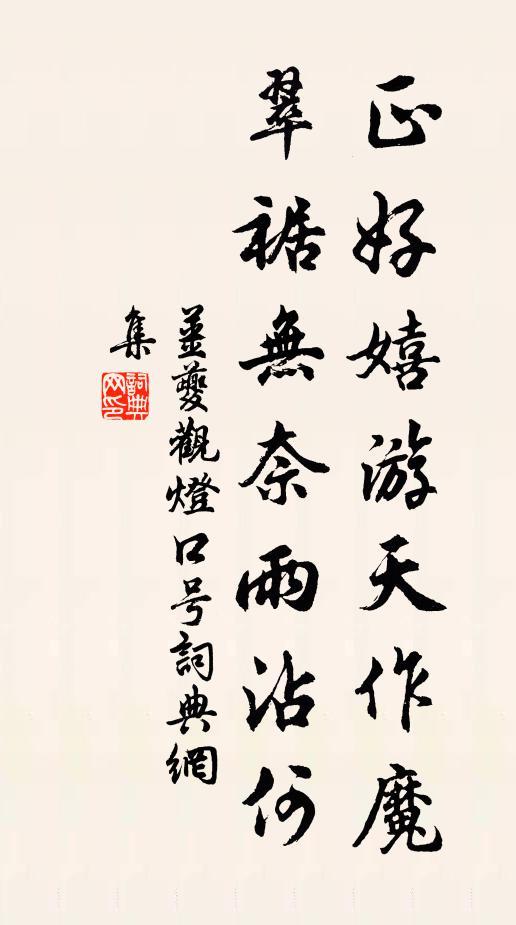 正好嬉游天作魔
翠裾無奈雨沾何
姜夔觀燈口号詞典網
集
詞典网印